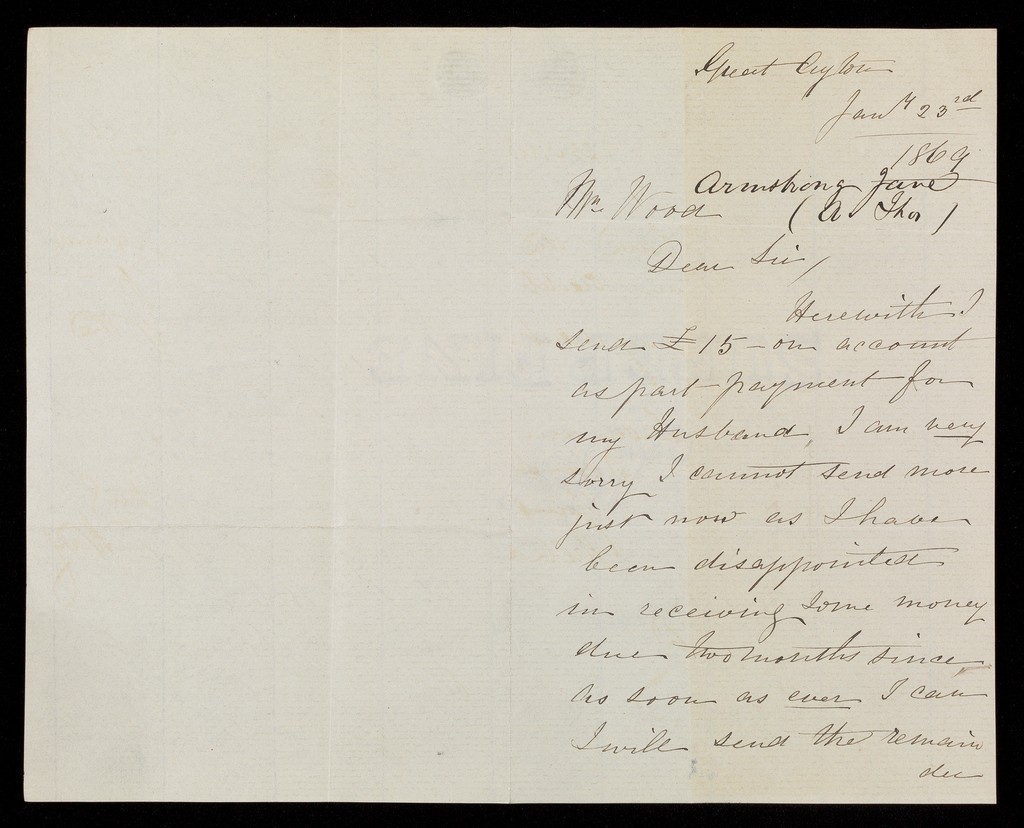 Great Ayton
Jany 23rd
1869
Armstrong Jane
Mr Wood (A. Thos)
Dear Sir,
Herewith I
send £15 - on account
as part payment for
my Husband, I am very
sorry I cannot send more
just now as I have
been disappointed
in receiving some money
due two months since,
as soon as ever I can
I will send the remain
der